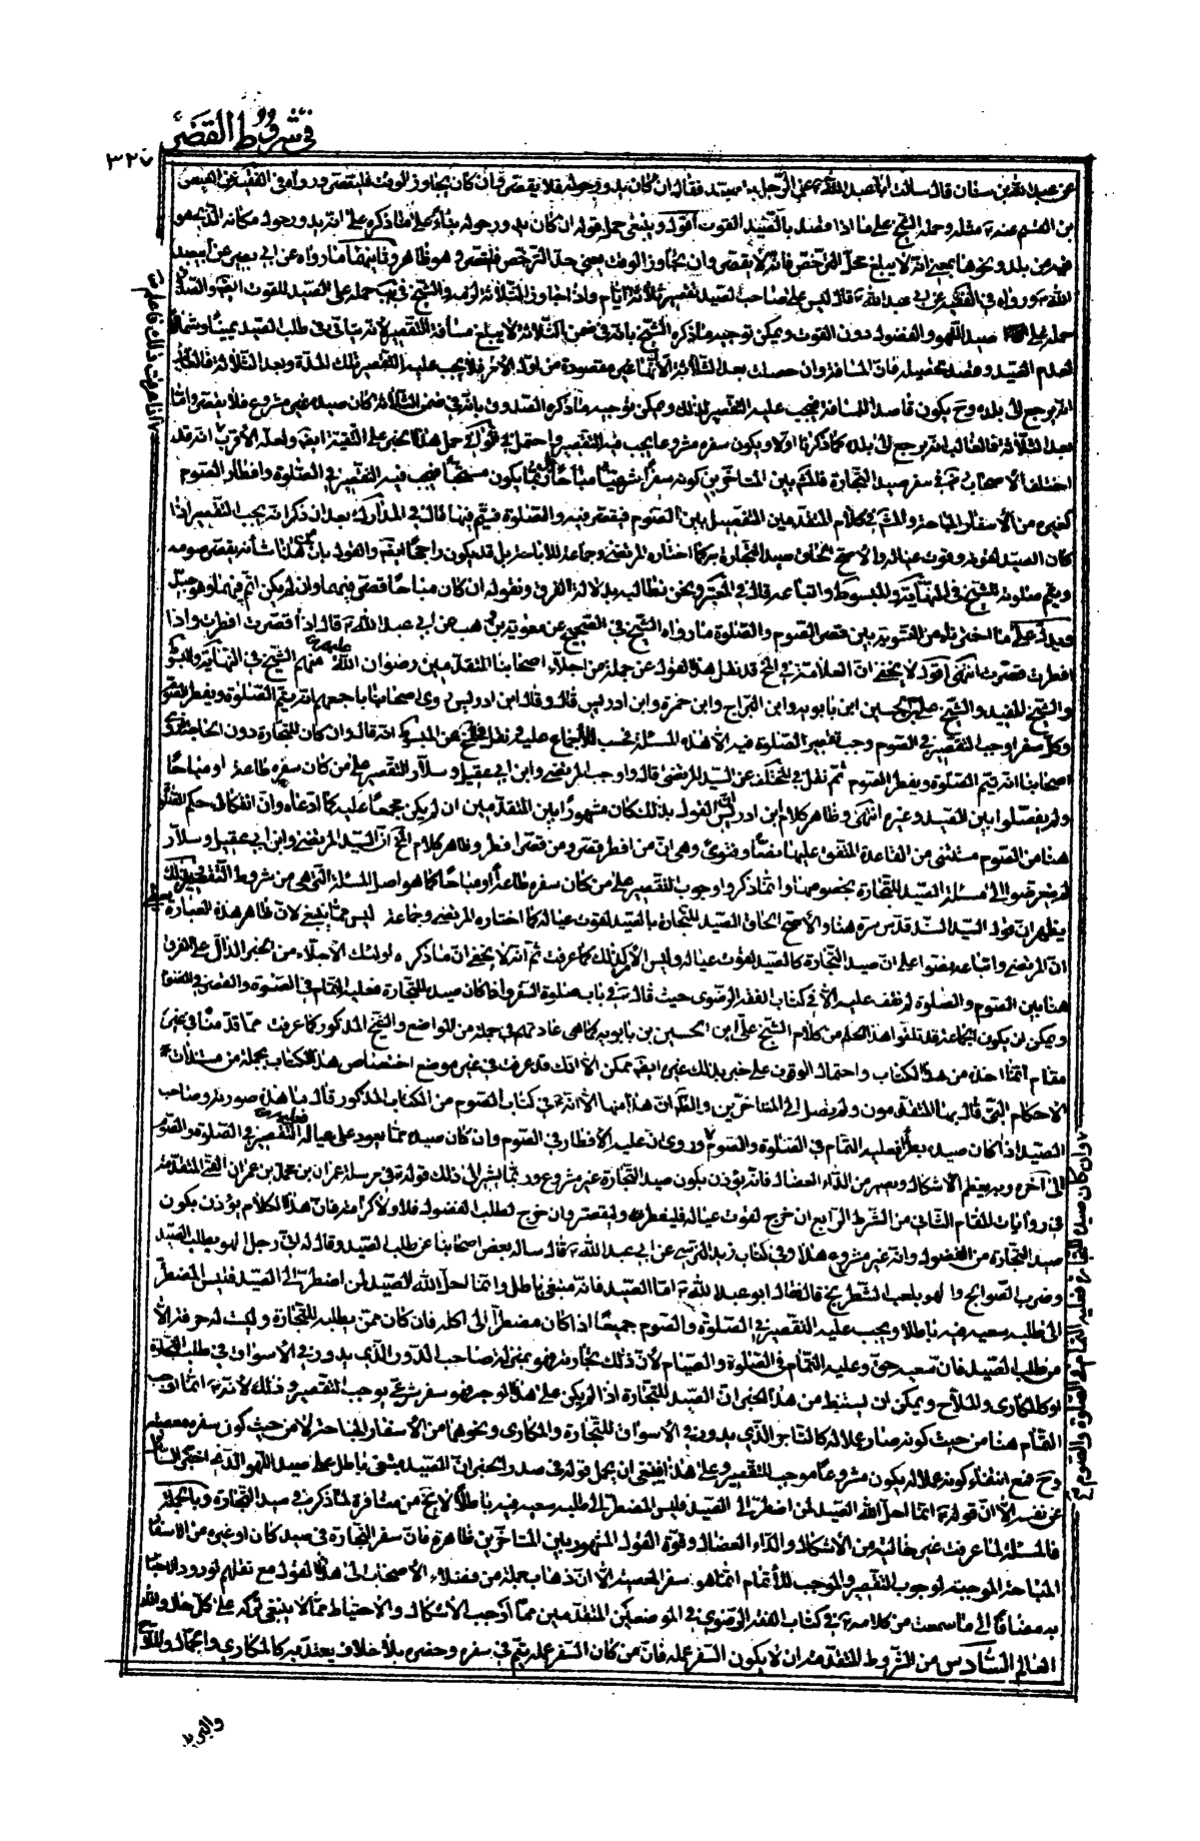 في شروط القصر
٣٢٧
عن عبد الله بن سنان قال سألت أبا عبد الله عن الرجل يتصيد فقال ان كان يدور حوله فلا يقصر وان كان يجاوز الوقت فليقصر ورواه في الفقيه عن العيص
بن القسم عنه مثله وحمله الشيخ على ما اذا قصد بالصيد القوت أقول وينبغي حمل قوله ان كان يدور حوله بناء على ما ذكره على انه يدور حوله مكانه الذي هو
الله ورواه في الفقيه عن ابي عبد الله قال ليس على صاحب الصيد تقصير ثلاثة ايام واذا جاوز الثلاثة لزمه والشيخ في حمله على الصيد للقوت ايضا
حمله على صيد اللهو والفضول دون القوت ويمكن توجيه ما ذكره الشيخ بانه في ضمن الثلاثة لا يبلغ مسافة التقصير لانه يتأنى في طلب الصيد يمينا وشمالا
لعدم الصيد وقصد تحصيله فان المسافة وان حصلت بعد الثلاثة الا انها غير مقصودة من اول الامر فلا يجب عليه التقصير تلك المدة وبعد الثلاثة فالغالب
انه يرجع الى بلده وح يكون قاصدا للمسافة فيجب عليه التقصير لذلك ويمكن توجيه ما ذكره الصدوق بانه في ضمن الثلاثة كان صيده غير مشروع فلا يقصر واما
بعد الثلاثة فالغالب انه يرجع الى بلده كما ذكرنا اولا ويكون سفره مشروعا يجب فيه التقصير واحتمل في الوافي حمل هذا الخبر على التقية ايضا ولعله الأقرب انه قد
اختلف الأصحاب في سفر صيد التجارة فالمشهور بين المتأخرين كونه سفرا مباحا بل ربما يكون مستحبا فيجب فيه التقصير في الصلوة وافطار الصوم
كغيره من الأسفار المباحة والمشهور في كلام المتقدمين التفصيل بين الصوم فيقصر فيه والصلوة فيتم فيها قال في المدارك بعد ان ذكر انه يجب التقصير اذا
كان الصيد لقوته وقوت عياله والأصح الحاق صيد التجارة به كما اختاره المرتضى وجماعة للاباحة بل قد يكون راجحا ايضا والقول بان من هذا شأنه يقصر صومه
ويتم صلوته للشيخ في النهاية والمبسوط واتباعه قال في المعتبر ونحن نطالبه بدلالة الفرق ونقول ان كان مباحا قصر فيهما وان لم يكن اتم فيهما وهو جيد
ويدل على ما اخترناه من التسوية بين قصر الصوم والصلوة ما رواه الشيخ في الصحيح عن معوية بن وهب عن ابي عبد الله قال اذا قصرت افطرت واذا
افطرت قصرت انتهى أقول لا يخفى ان العلامة في المختلف قد نقل هذا القول عن جملة من اجلاء اصحابنا المتقدمين رضوان الله عليهم منهم الشيخ في النهاية والمبسوط
والشيخ المفيد والشيخ علي بن الحسين ابن بابويه وابن البراج وابن حمزة وابن ادريس قال وقال ابن ادريس روى اصحابنا باجمعهم انه يتم الصلوة ويفطر الصوم
وكل سفر اوجب التقصير في الصوم وجب تقصير الصلوة فيه الا هذه المسئلة فحسب للاجماع عليه ونقل في المختلف عن المبسوط انه قال وان كان للتجارة دون الحاجة روى
اصحابنا انه يتم الصلوة ويفطر الصوم ثم نقل في المختلف عن السيد المرتضى قال واوجب المرتضى وابن ابي عقيل وسلار التقصير على من كان سفره طاعة او مباحا
ولم يفصلوا بين الصيد وغيره انتهى وظاهر كلام ابن ادريس ان القول بذلك كان مشهورا بين المتقدمين ان لم يكن مجمعا عليه كما ادعاه وان انفكاك حكم الصلوة
هنا من الصوم مستثنى من القاعدة المتفق عليها نصا وفتوى وهي ان من افطر قصر ومن قصر افطر وظاهر كلام المختلف ان السيد المرتضى وابن ابي عقيل وسلار
لم يتعرضوا الى مسئلة الصيد للتجارة بخصوصها وانما ذكروا وجوب التقصير على من كان سفره طاعة او مباحا كما هو اصل المسئلة التي هي من شروط التقصير
يظهر ان قول السيد السند قدس سره هنا والأصح الحاق الصيد للتجارة بالصيد لقوت عياله كما اختاره المرتضى وجماعة ليس مما ينبغي لان ظاهر هذه العبارة
ان المرتضى واتباعه نصوا على ان صيد التجارة كالصيد لقوت عياله وليس الأمر كذلك كما عرفت ثم انه لا يخفى ان ما ذكره اولئك الأجلاء من الخبر الدال على الفرق
هنا بين الصوم والصلوة لم نقف عليه الا في كتاب الفقه الرضوي حيث قال في باب صلوة السفر واذا كان صيده للتجارة فعليه التمام في الصلوة والقصر في الصوم
ويمكن ان يكون الجماعة قد تلقوا هذا الحكم من كلام الشيخ علي ابن الحسين بن بابويه كما هي عادتهم في جملة من المواضع والشيخ المذكور كما عرفت مما قدمنا في غير
مقام انما اخذه من هذا الكتاب واحتمال الوقوف على خبر بذلك غيره ايضا ممكن الا انك قد عرفت في غير موضع اختصاص هذا الكتاب بجملة من مستندات
الاحكام التي قال بها المتقدمون ولم يصل الى المتأخرين والظاهر ان هذا منها الا انه في كتاب الصوم من الكتاب المذكور قال ما هذه صورته وصاحب
الصيد اذا كان صيده بطرا فعليه التمام في الصلوة والصوم وروي ان عليه الافطار في الصوم وان كان صيده مما يعود على عياله فعليه التقصير في الصلوة والصوم
الى آخره وبه يعظم الاشكال ويصير من الداء العضال فانه يؤذن بكون صيد التجارة غير مشروع وربما يشير الى ذلك قوله في مرسلة عمران بن محمد بن عمران القمي المتقدمة
في روايات المقام الثاني من الشرط الرابع ان خرج لقوت عياله فليفطر وليقصر وان خرج لطلب الفضول فلا ولا كرامة فان هذا الكلام يؤذن بكون
صيد التجارة من الفضول وانه غير مشروع هذا وفي كتاب زيد النرسي عن ابي عبد الله قال سأله بعض اصحابنا عن طلب الصيد وقال له اني رجل الهو بطلب الصيد
وضرب الصوالج والهو بلعب الشطرنج قال فقال ابو عبد الله اما الصيد فانه مبتغى باطل وانما احل الله الصيد لمن اضطر الى الصيد فليس المضطر
الى طلبه سعيه فيه باطلا ويجب عليه التقصير في الصلوة والصوم جميعا اذا كان مضطرا الى اكله فان كان ممن يطلبه للتجارة وليست له حرفة الا
من طلب الصيد فان سعيه حق وعليه التمام في الصلوة والصيام لأن ذلك تجارته فهو بمنزلة صاحب الدور الذي يدور في الأسواق في طلب التجارة
او كالمكاري والملاح ويمكن ان يستنبط من هذا الخبر ان الصيد للتجارة اذا لم يكن على هذا الوجه فهو سفر شرعي يوجب التقصير وذلك لانه انما اوجب
التمام هنا من حيث كونه صار عملا له كالتاجر الذي يدور في الأسواق للتجارة والمكاري ونحوهما من الأسفار المباحة لا من حيث كون سفره معصية
وح فمع انتفاء كونه عملا له يكون مشروعا موجب التقصير وعلى هذا فينبغي ان يحمل قوله في صدر الخبر ان الصيد مبتغى باطل على صيد اللهو الذي اخبر السائل
عن نفسه الا ان قوله انما احل الله الصيد لمن اضطر الى الصيد فليس المضطر الى طلبه سعيه فيه باطلا لا يخ من منافرة لما ذكره في صيد التجارة وبالجملة
فالمسئلة لما عرفت غير خالية من الأشكال والداء العضال وقوة القول المشهور بين المتأخرين ظاهرة فان سفر التجارة في صيد كان او غيره من الاسفار
المباحة الموجبة لوجوب التقصير والموجب للأتمام انما هو سفر المعصية الا ان ذهاب جملة من فضلاء الأصحاب الى هذا القول مع نقلهم لورود الأخبار
به مضافا الى ما سمعت من كلامه في كتاب الفقه الرضوي في الموضعين المتقدمين مما اوجب الأشكال والاحتياط مما لا ينبغي تركه على كل حال والله
العالم السادس من الشروط المتقدمة ان لا يكون السفر عمله فان من كان السفر عمله يتم في سفره وحضره بلا خلاف يعتد به كالمكاري والجمال والملاح
وان كان صيده للتجارة فعليه التمام في الصلوة والصوم